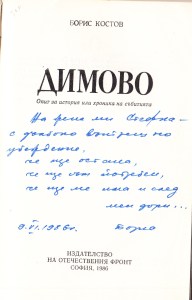 БОРИС КОСТОВ
ДИМОВО
Опит за история или хроника на събитията
На
с дълбоко вътрешно
убеждение,
че ще остана,
че ще съм потребен,
че ще ме има и след
мен дори...
9.VI.1986г.
ИЗДАТЕЛСТВО
НА ОТЕЧЕСТВЕНИЯ ФРОНТ
СОФИЯ, 1986